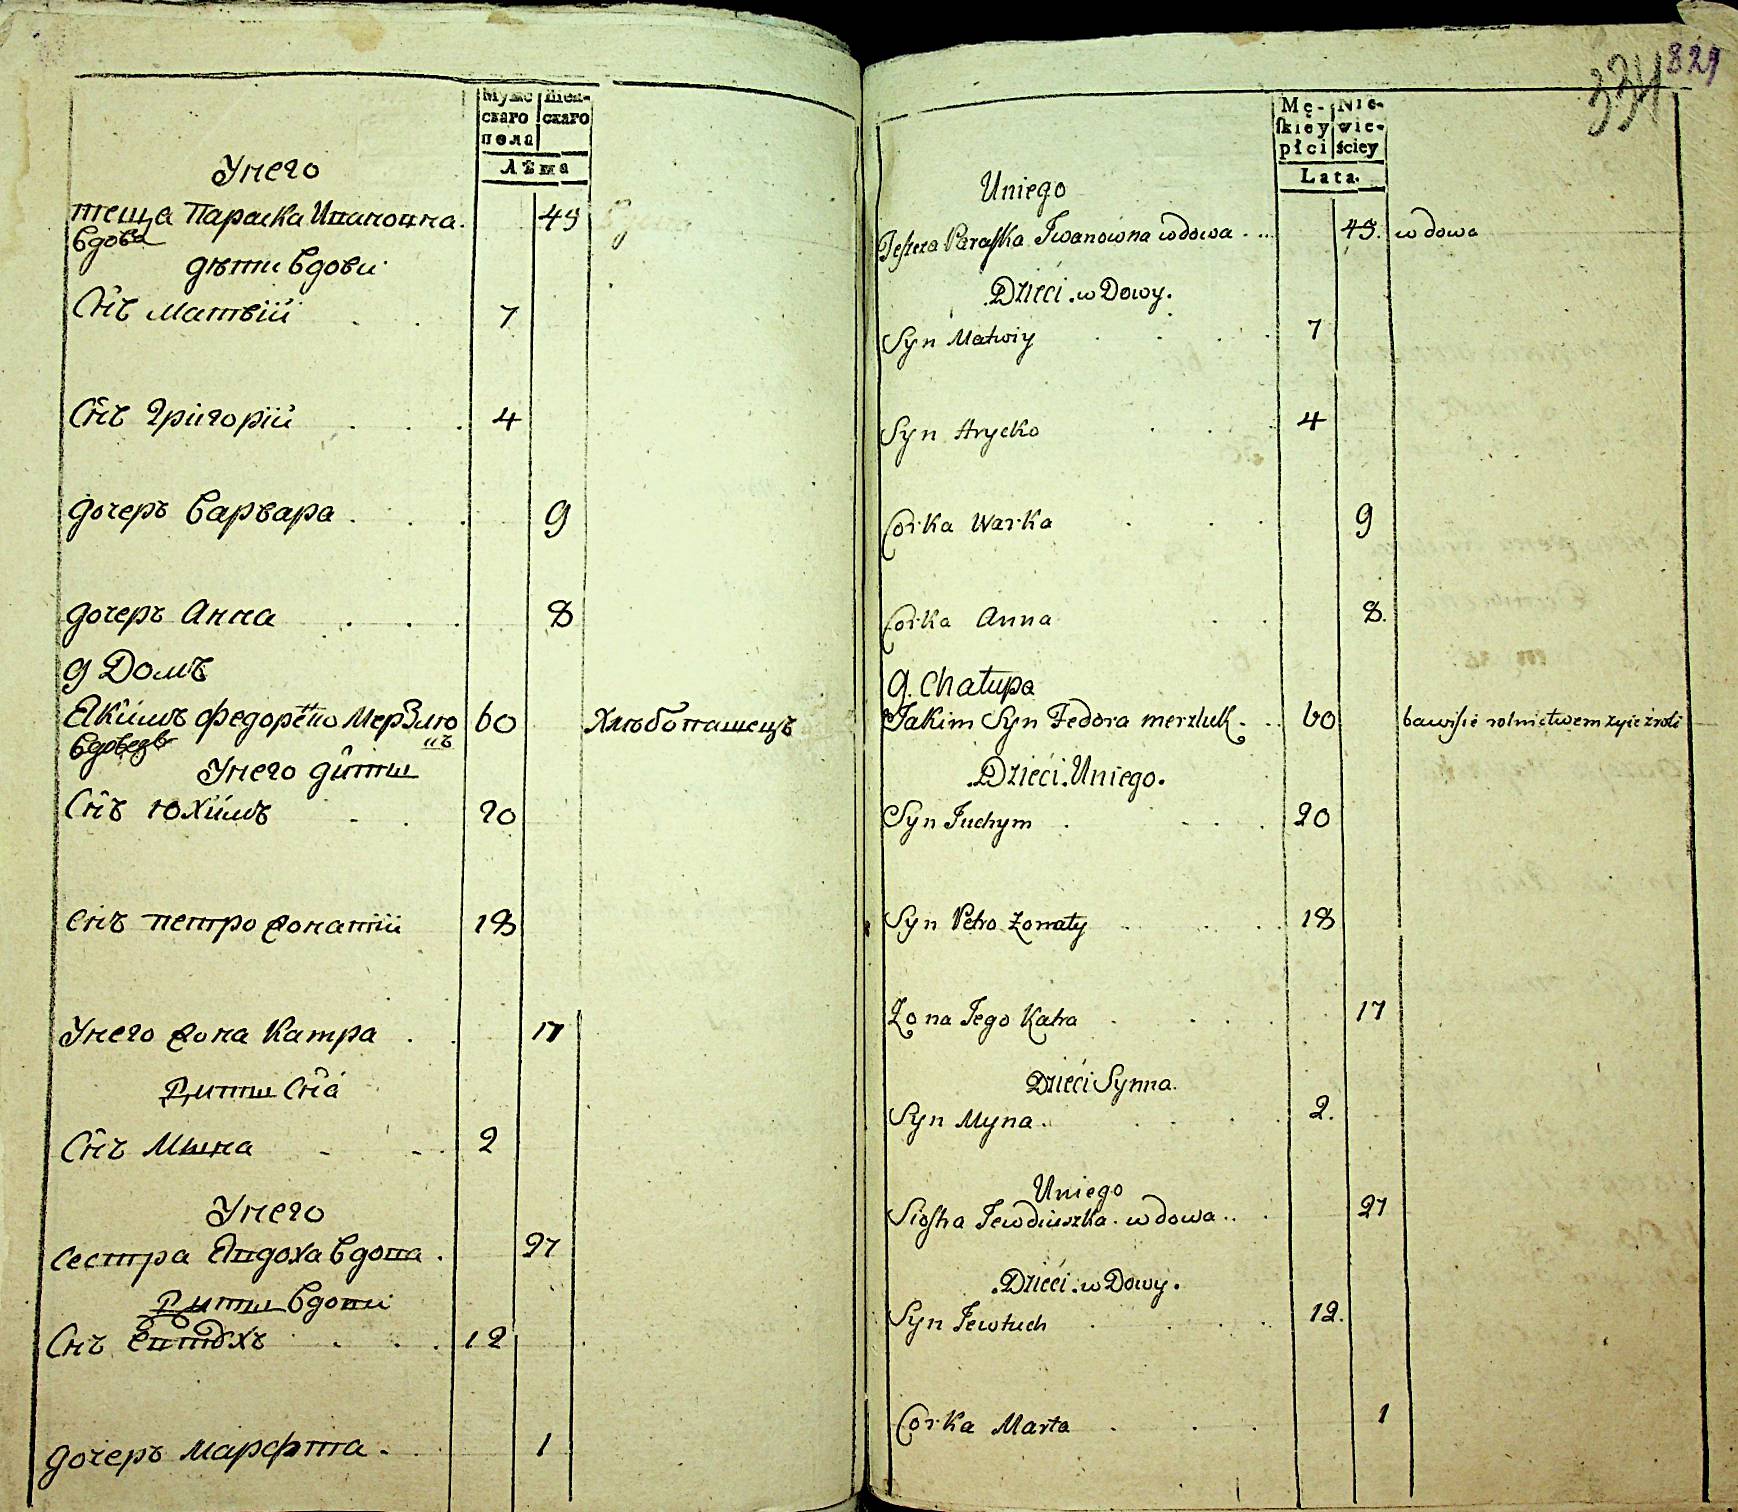 Мужескаго пола
Женскаго
Лѣта
Унего
теща Параска Ивановна 45
вдова
дѣти вдови
Сн҃ъ Матвій 7
Сн҃ъ Григорій 4
дочеръ Варвара 9
дочеръ Анна 8
9 Домъ
Якимъ Федоренко Мерзлю 60 Хлѣбопашецъ
вдовецъ
Унего дити
Сн҃ъ Юхимъ 20
Сн҃ъ петро жонатій 18
Унего жона Катра 17
Дити Сн҃а
Сн҃ъ Мина 2
Унего
сестра Явдоха вдова 27
Дити вдови
Сн҃ъ Евтухъ 12
дочеръ Марфта 1
334 829
Męſkiey płci
Niewieściey
Lata.
Uniego
Teſzcza Paraſka Iwanowna wdowa 45. wdowa
Dzieci wDowy.
Syn Matwiy 7
Syn Hrycko 4
Corka Warka 9
Corka Anna 8.
9. Chałupa
Jakim Syn Fedora merzluk 60 bawiſie rolnictwem zyie zroli
Dzieci Uniego.
Syn Juchym 20
Syn Petro Żonaty 18
Żona Jego Katra 17
Dzieci Synna.
Syn Myna 2.
Uniego
Sioſtra Jewdiuszka wdowa 27
Dzieci wDowy.
Syn Jewtuch 12.
Corka Marta 1